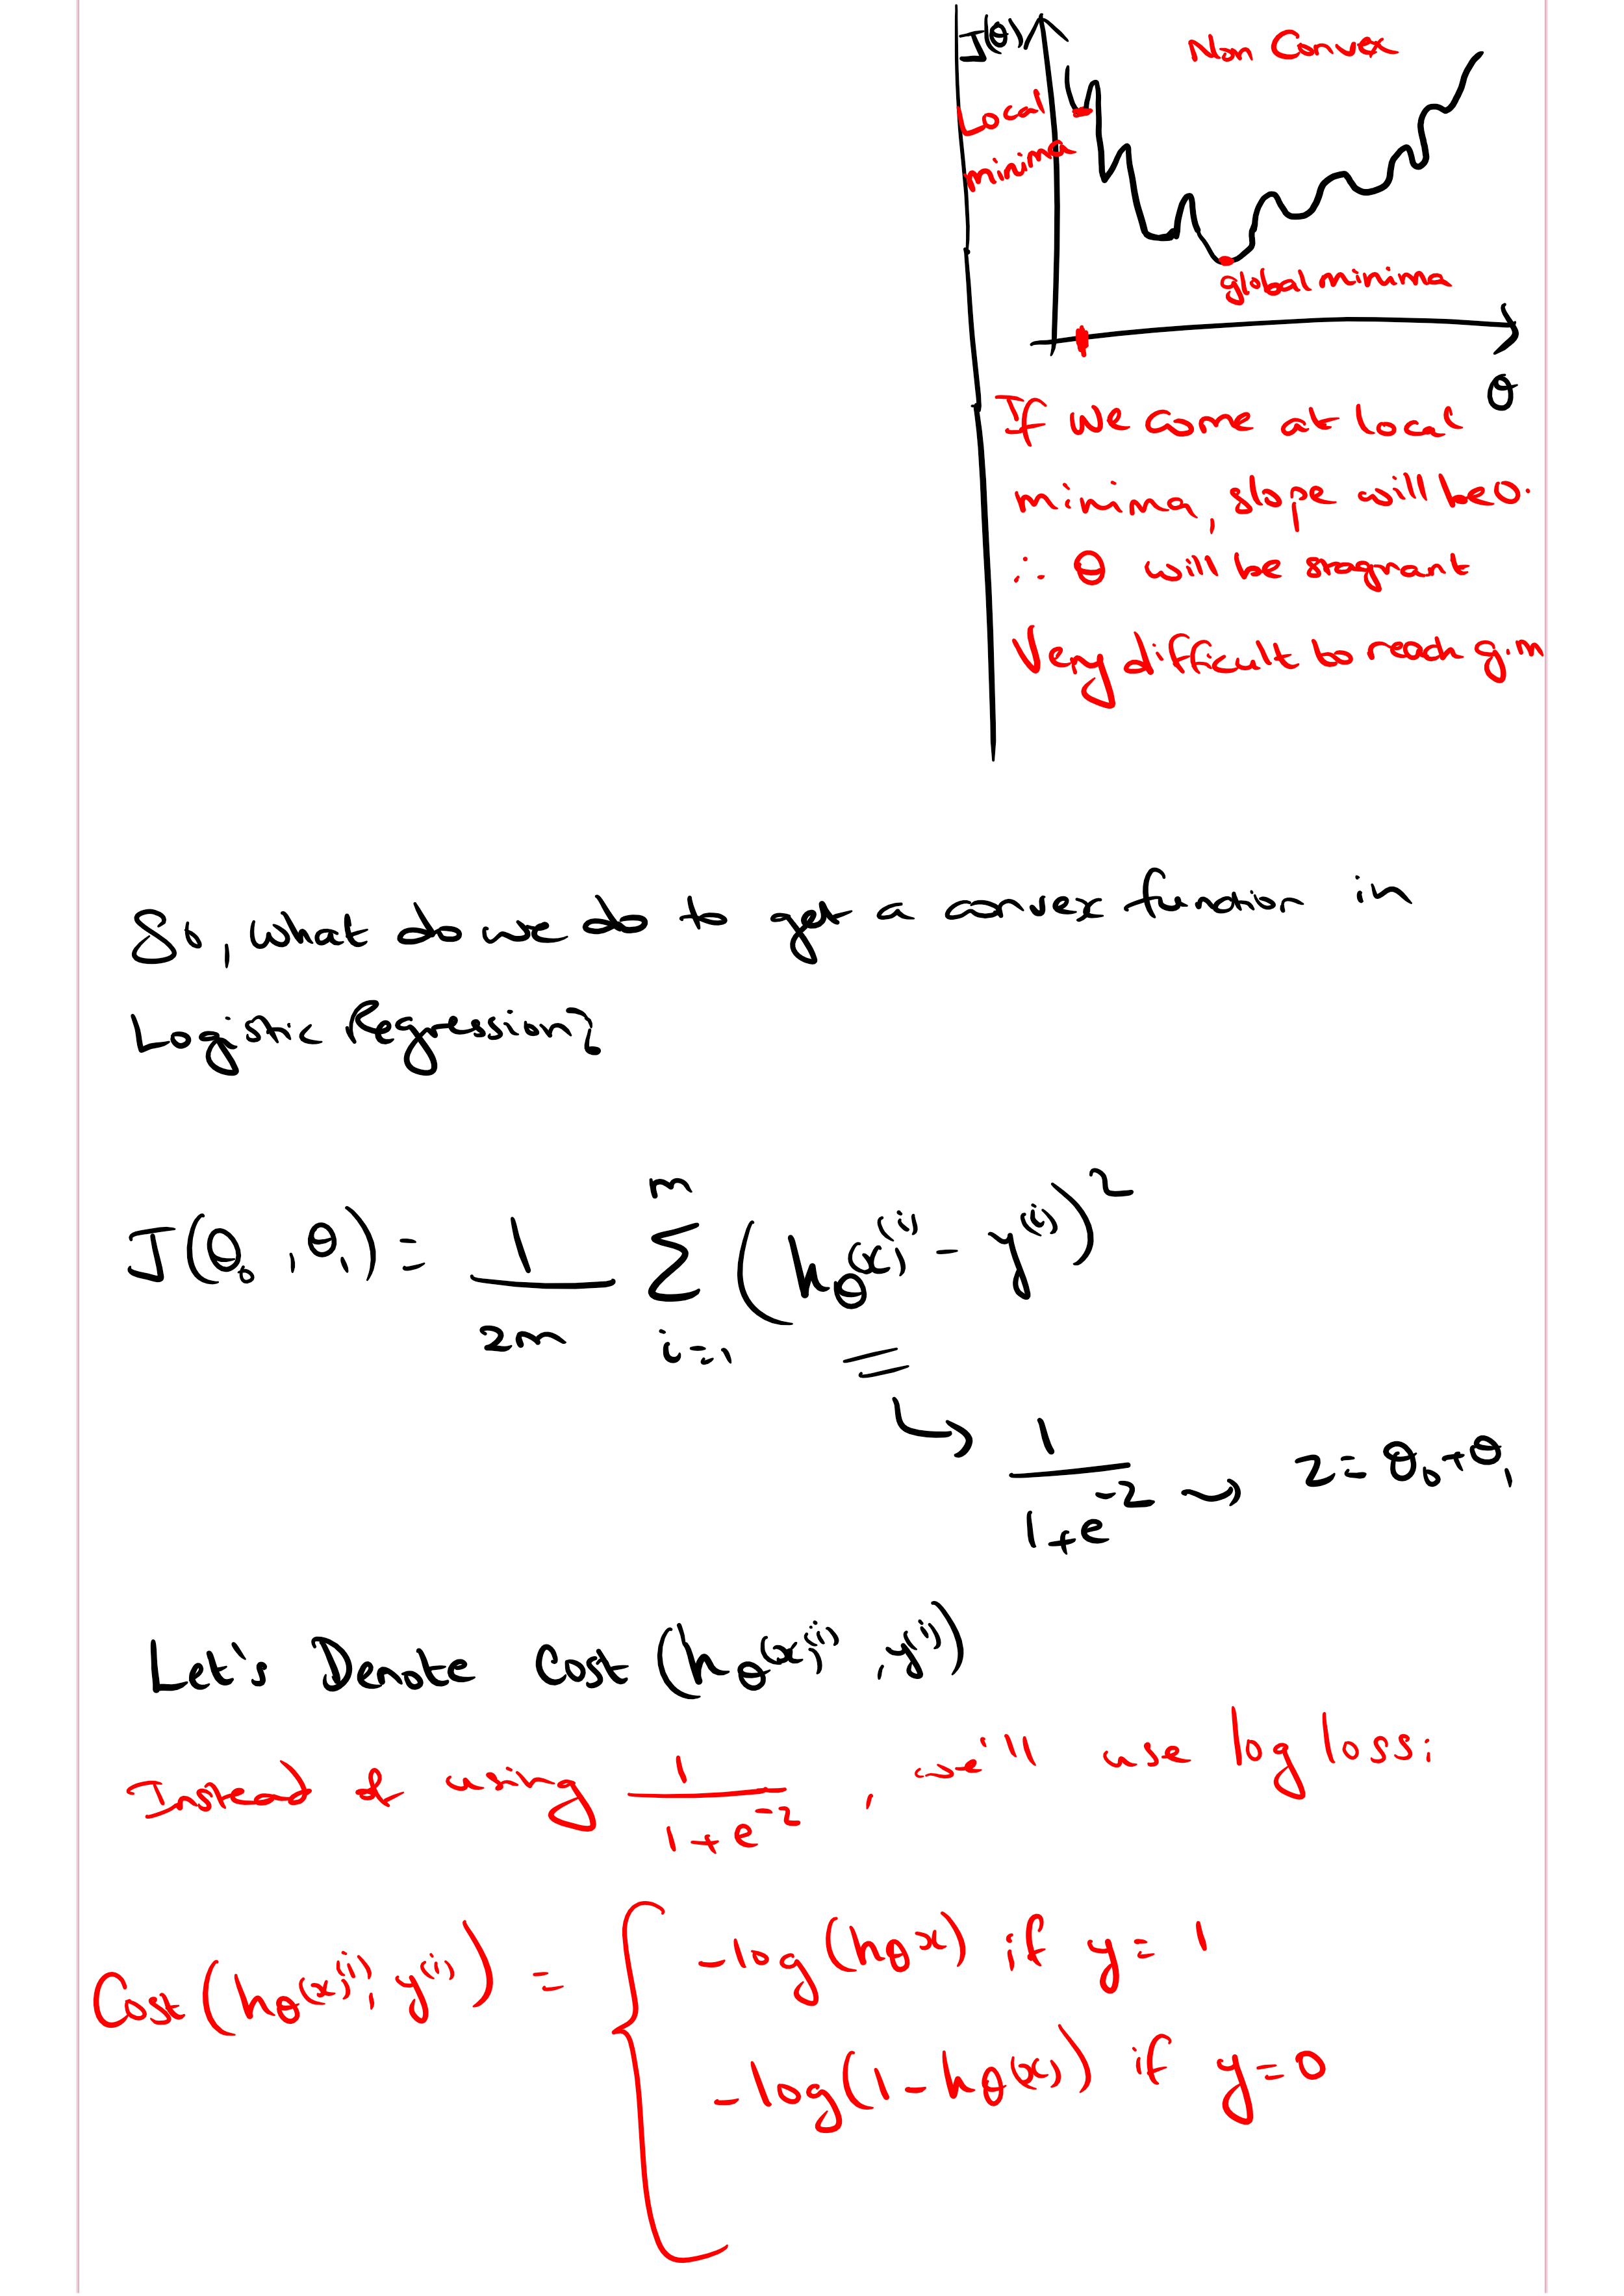 J(θ)
Non Convex
Local
minima
global minima
θ
If we come at local
minima, slope will be 0.
∴ θ will be stagnant
Very difficult to reach g.m
So, what do we do to get a convex function in
Logistic Regression?
J(θ₀, θ₁) = 1/2m Σᵢ₌₁ᵐ (hθ(x)⁽ⁱ⁾ - y⁽ⁱ⁾)²
↳ 1/(1+e^-z) → z = θ₀+θ₁
Let's Denote Cost (hθ(x)⁽ⁱ⁾, y⁽ⁱ⁾)
Instead of using 1/(1+e^-z), we'll use log loss:
Cost (hθ(x)⁽ⁱ⁾, y⁽ⁱ⁾) = { -log(hθx) if y = 1
-log(1-hθ(x)) if y=0